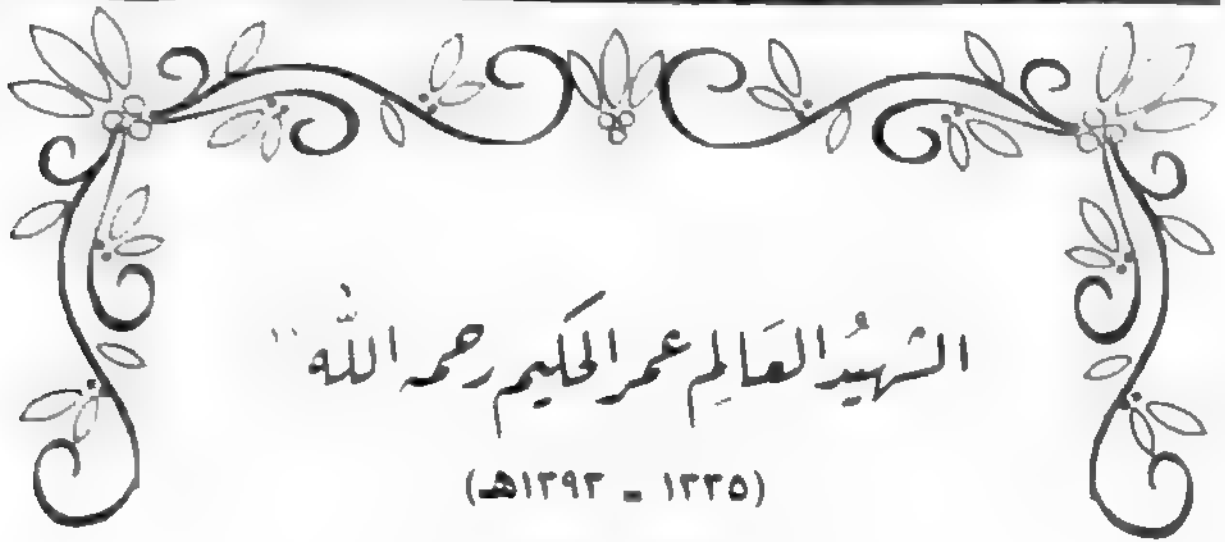 الشهيدُ العَالِم عمر الحكيم رحمه اللّه
(١٣٣٥ - ١٣٩٣هـ)